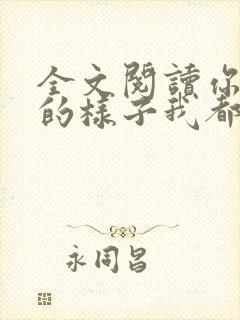 全文閱讀你
的樣子我都
永同昌